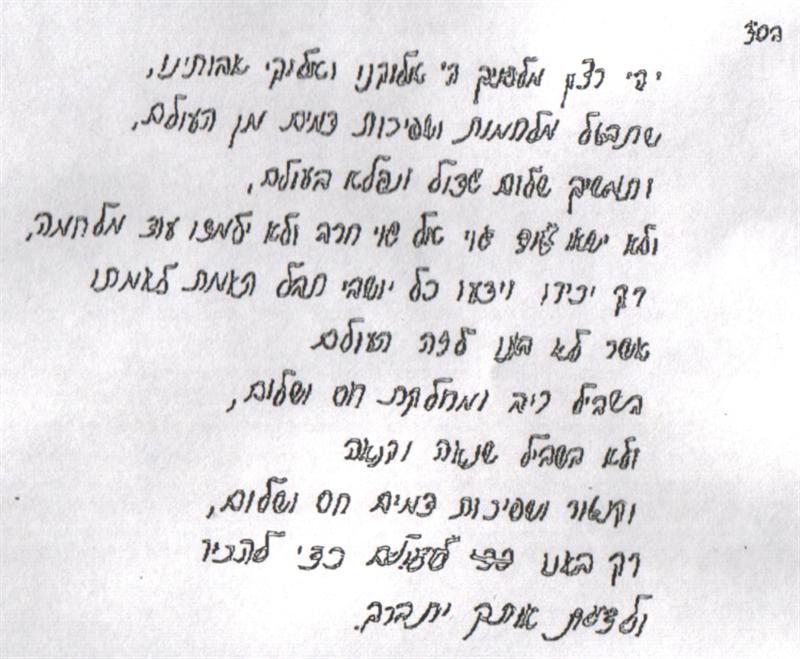 בס״ד
יהי רצון מלפניך ה' אלוקנו ואלוקי אבותינו,
שתבטל מלחמות ושפיכות דמים מן העולם,
ותמשיך שלום גדול ונפלא בעולם,
ולא ישאו גוי אל גוי חרב ולא ילמדו עוד מלחמה,
רק יכירו וידעו כל יושבי תבל האמת לאמתו
אשר לא באנו לזה העולם
בשביל ריב ומחלוקת חס ושלום,
ולא בשביל שנאה וקנאה
וקנטור ושפיכות דמים חס ושלום,
רק באנו לעולם כדי להכיר
ולדעת אותך יתברך.